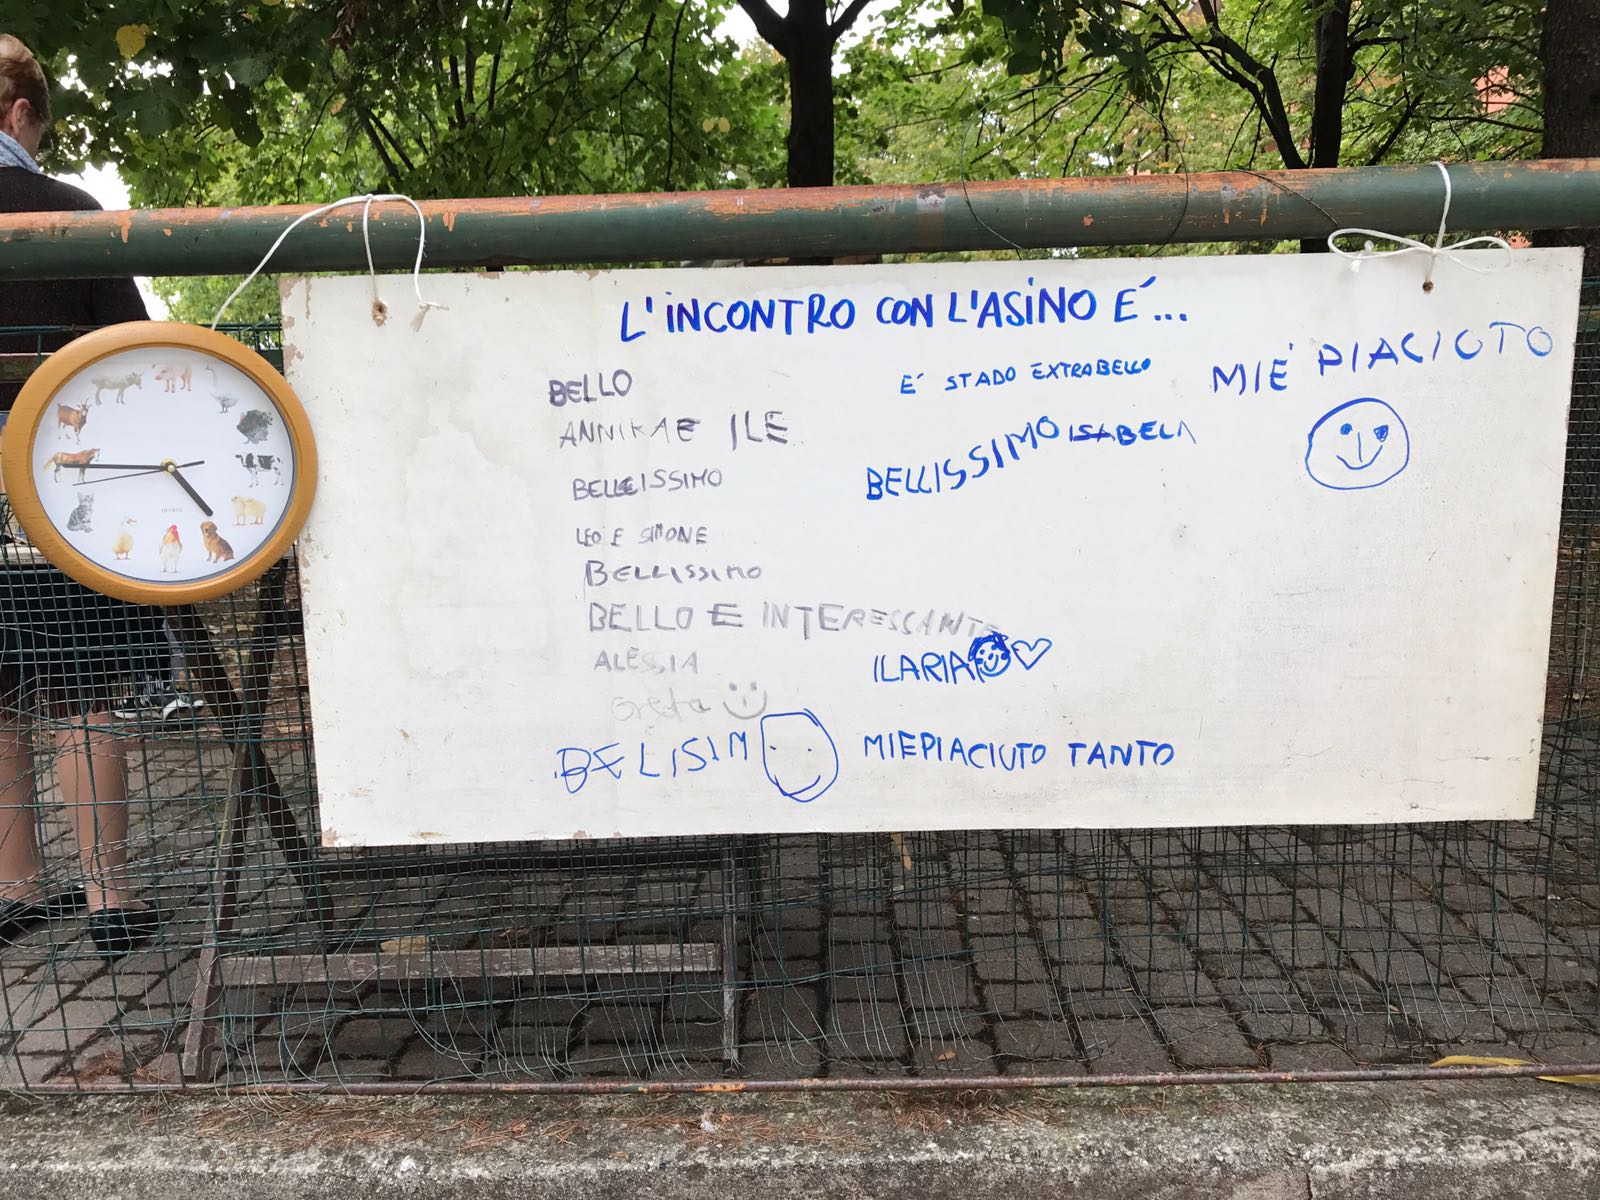 L'INCONTRO CON L'ASINO É...
BELLO
ANNIKA E ILE
BELLEISSIMO
LEO E SIMONE
BELLISSIMO
BELLO E INTERESSANTE
ALESSIA
Greta
BELISIM
É STADO EXTRABELLO
BELLISSIMO ISABELA
ILARIA
MIEPIACIUTO TANTO
MIE' PIACIUTO